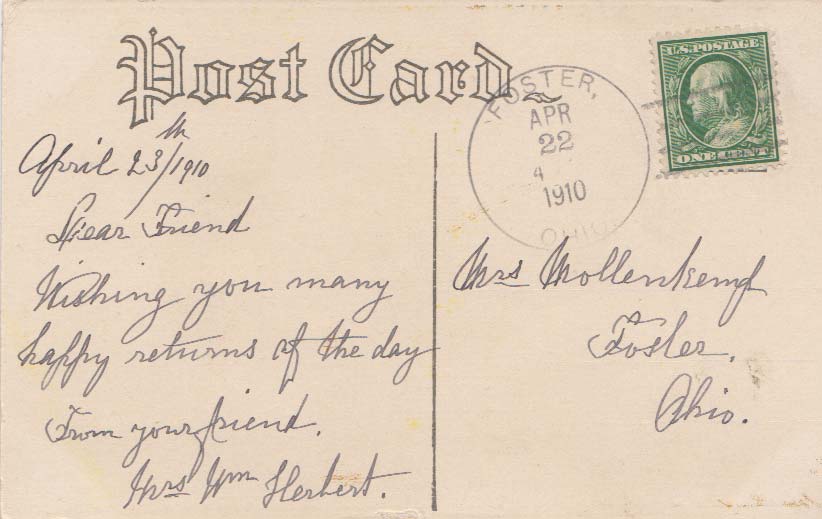 Post Card
FOSTER,
APR
22
4
1910
OHIO
U.S. POSTAGE
ONE CENT
April 23th/1910
Dear Friend
Wishing you many
happy returns of the day
From your friend.
Mrs Wm Herbert.
Mrs Mollenkemp
Foster,
Ohio.